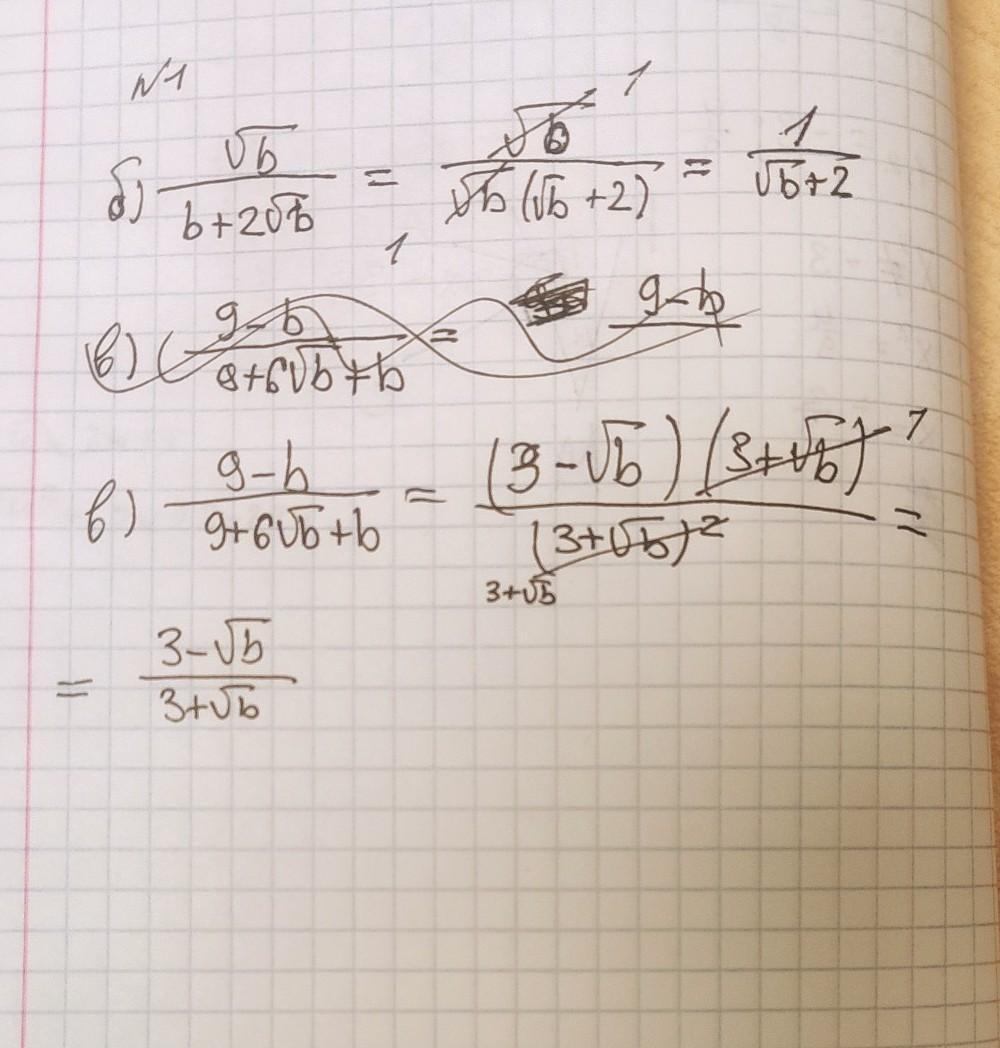 N1
б) √b / (b+2√b) = √b / (√b (√b +2)) = 1 / (√b+2)
1
1
в) (9-b / (9+6√b+b) = 9-b
в) (9-b) / (9+6√b+b) = (3-√b) (3+√b) / (3+√b)² =
1
3+√b
= (3-√b) / (3+√b)